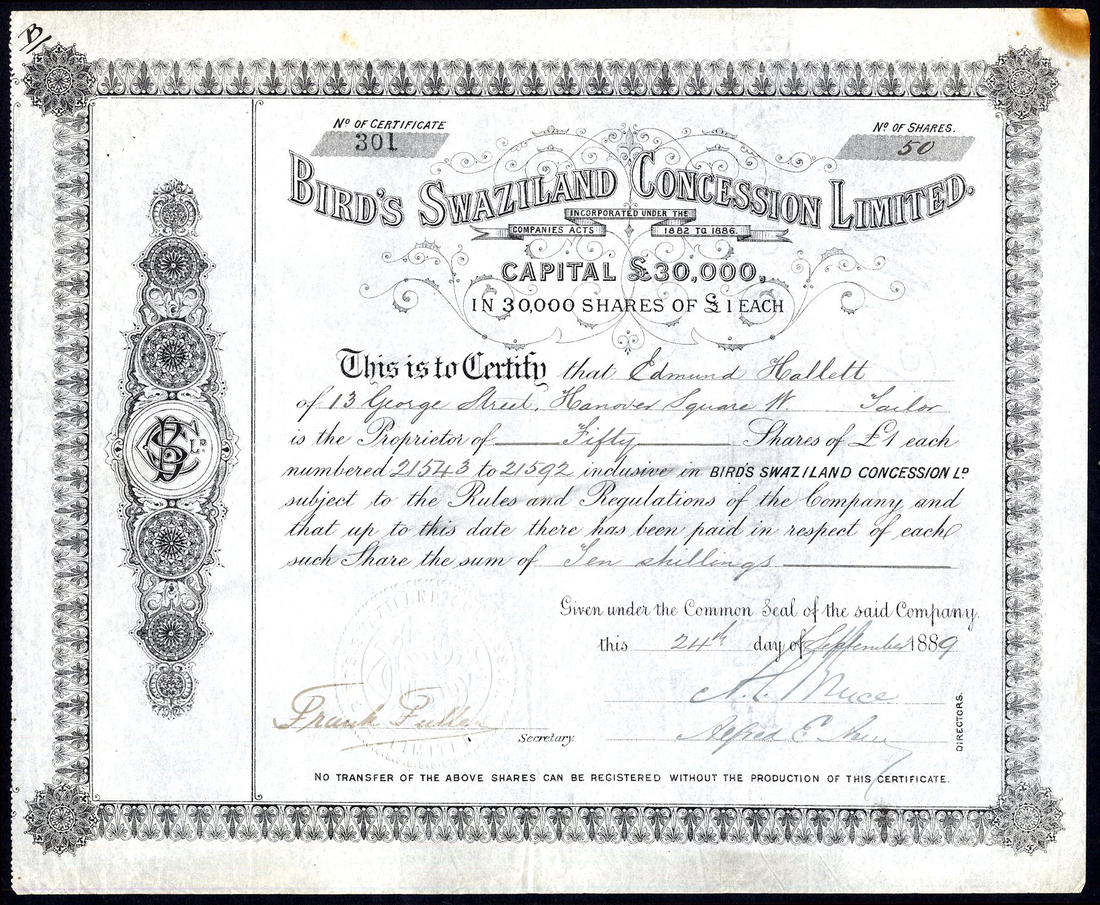 B/
Nº OF CERTIFICATE
301
Nº OF SHARES.
50
BIRD'S SWAZILAND CONCESSION LIMITED.
INCORPORATED UNDER THE
COMPANIES ACTS 1882 TO 1886.
CAPITAL £30,000,
IN 30,000 SHARES OF £1 EACH
This is to Certify that Edmund Hallett
of 13 George Street, Hanover Square W. Tailor
is the Proprietor of Fifty Shares of £1 each
numbered 21543 to 21592 inclusive in BIRD'S SWAZILAND CONCESSION Lᴰ.
subject to the Rules and Regulations of the Company and
that up to this date there has been paid in respect of each
such Share the sum of Ten shillings
Given under the Common Seal of the said Company.
this 24th day of September 1889
Frank Fuller
Secretary.
Alfred E.
DIRECTORS.
LIMITED
NO TRANSFER OF THE ABOVE SHARES CAN BE REGISTERED WITHOUT THE PRODUCTION OF THIS CERTIFICATE.